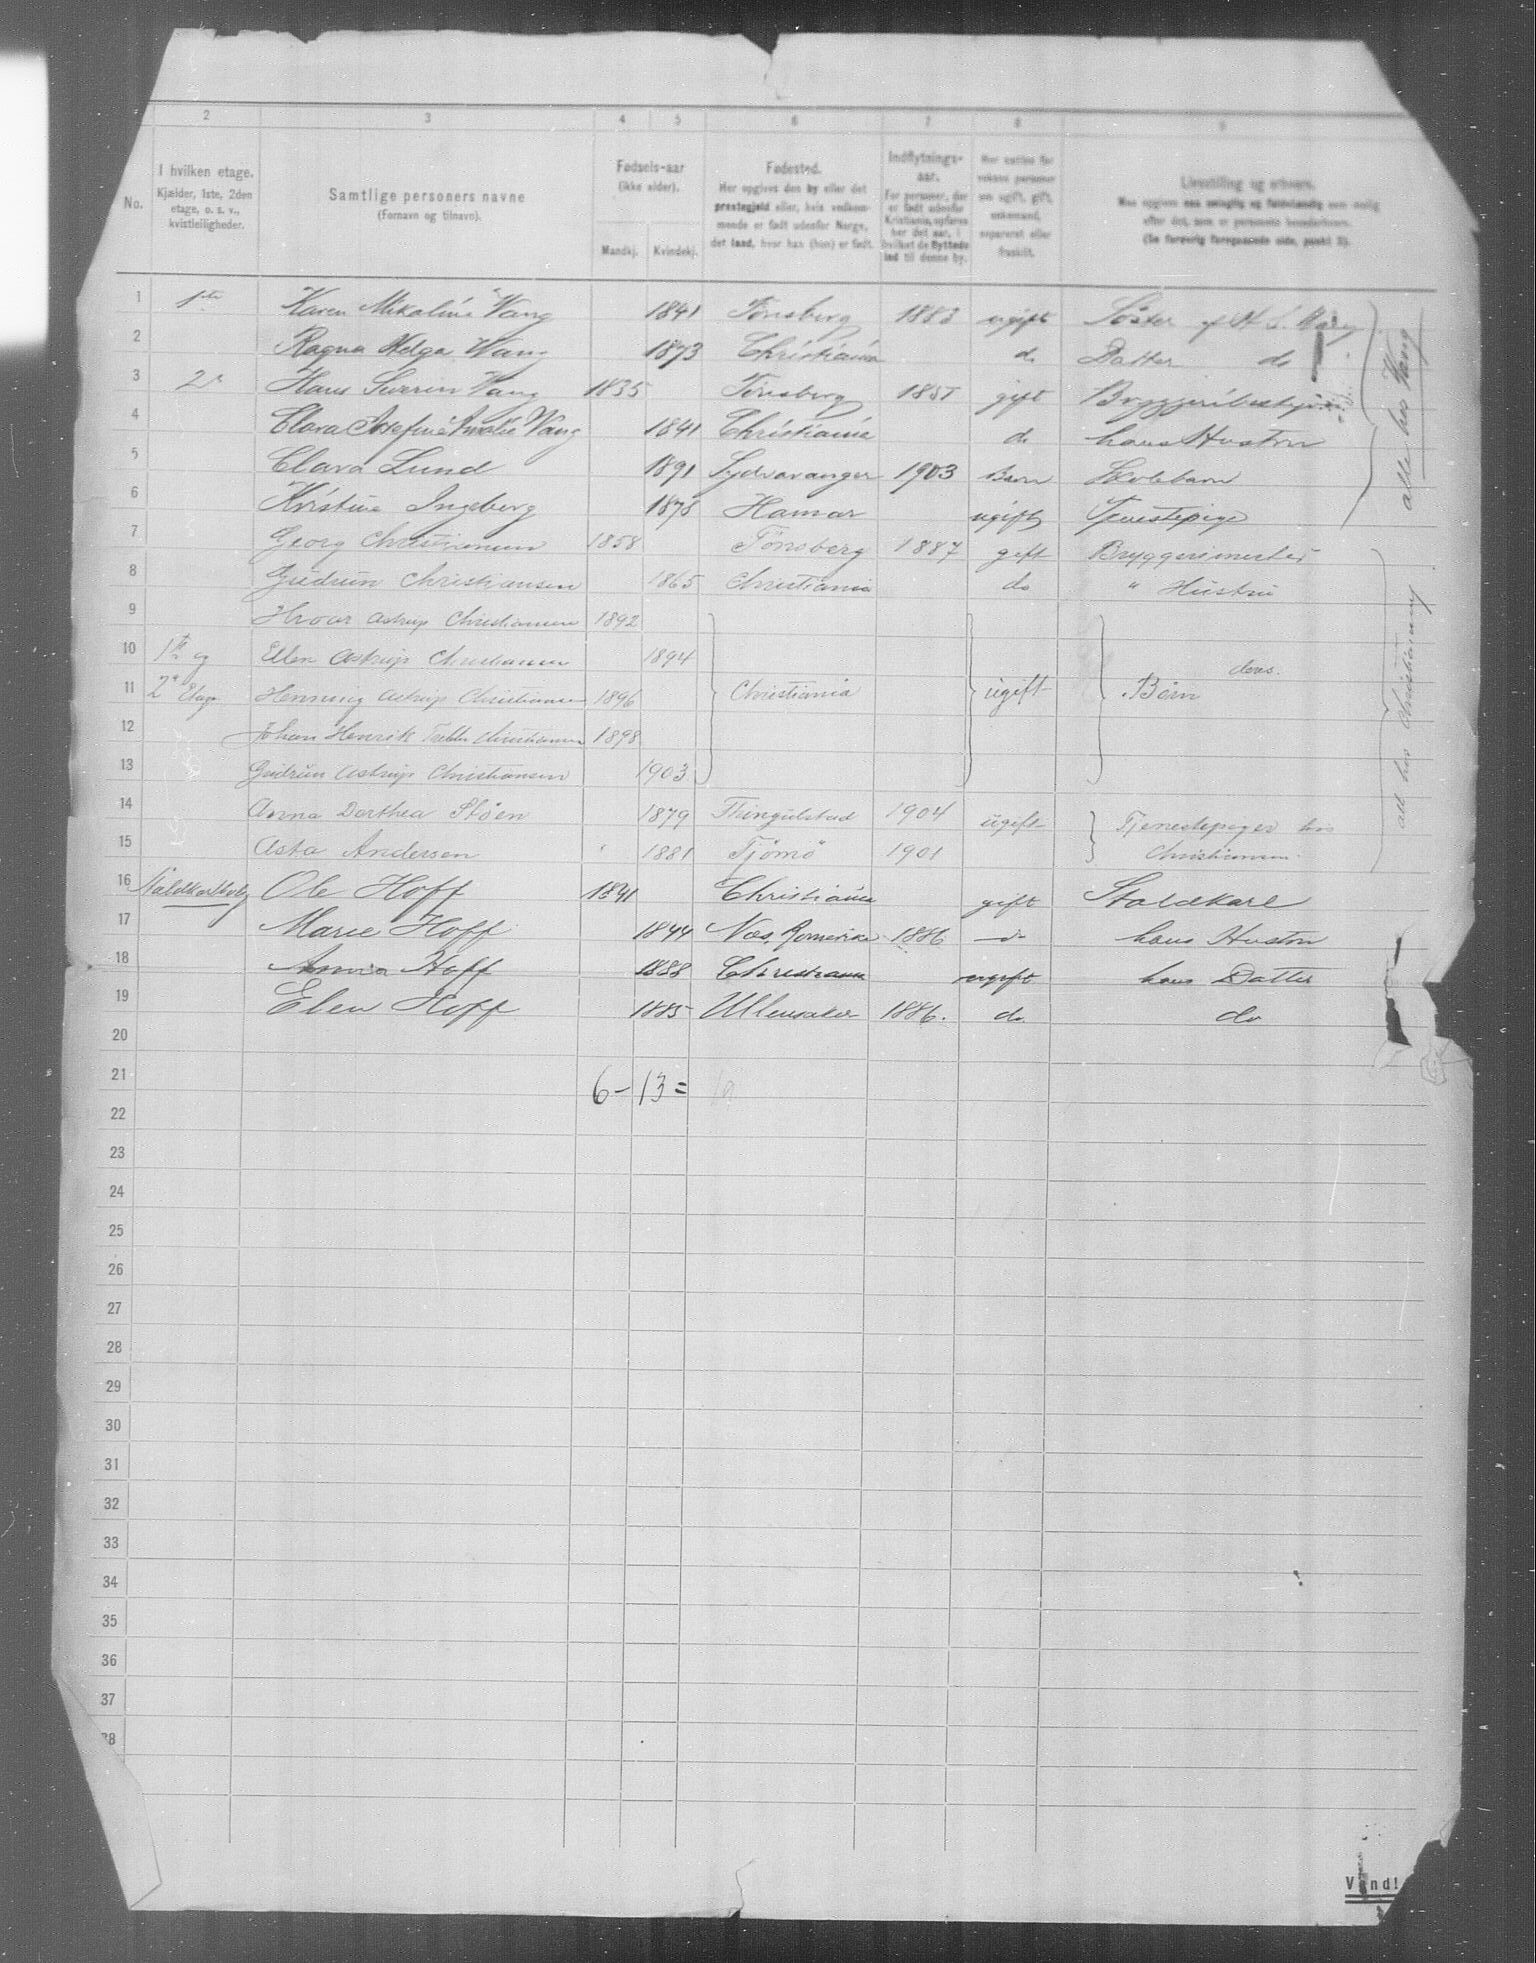 2 3 4 5 6 7 8 9
No.
I hvilken etage.
Kjælder, 1ste, 2den
etage, o. s. v.,
kvistleiligheder.
Samtlige personers navne
(Fornavn og tilnavn).
Fødsels-aar
(ikke alder).
Mandkj. Kvindekj.
Fødested.
Her opgives den by eller det
prestegjeld eller, hvis vedkom-
mende er født udenfor Norge,
det land, hvor han (hun) er født.
Indflytnings-
aar.
For personer, der
er født udenfor
Kristiania, opføres
her det aar, i
hvilket de flyttede
ind til denne by.
Her sættes for
voksne personer
om ugift, gift,
enkemand,
separeret eller
fraskilt.
Livsstilling og erhverv.
Maa opgives saa nøiagtig og fuldstændig som mulig
efter det, som er personens hovederhverv.
(Se forøvrig foregaaende side, punkt 3).
1 1ste Karen Mikaline Wang 1841 Tönsberg 1883 ugift Söster af H. S. Wang
2 Ragna Helga Wang 1873 Christiania d. Datter do
3 2n Hans Severin Wang 1835 Tönsberg 1857 gift Bryggeribestyrer
4 Clara Josefine Amalie Wang 1841 Christiania d. hans Hustru
5 Clara Lund 1891 Sydvaranger 1903 Barn Skolebarn
6 Kristine Ingeberg 1878 Hamar ugift Tjenestepige
alle hos Wang
7 Georg Christiansen 1858 Tönsberg 1887 gift Bryggerimester
8 Gudrun Christiansen 1865 Christiania do " Hustru
9 Hroar Astrup Christiansen 1892
10 1ste og Ellen Astrup Christiansen 1894
11 2n Etage Henning Astrup Christiansen 1896 Christiania ugift deres Börn
12 Johan Henrik Christiansen 1898
13 Gudrun Astrup Christiansen 1903
14 Anna Dorthea Stöen 1879 Thingelstad 1904 ugift Tjenestepiger hos
15 Asta Andersen 1881 Tjömö 1901 Christiansen
alle hos Christiansen
16 Staldkarbolig Ole Hoff 1841 Christiania gift Staldkarl
17 Marie Hoff 1844 Næs, Romerike 1886 do hans Hustru
18 Anna Hoff 1888 Christiania ugift hans Datter
19 Elen Hoff 1885 Ullensaker 1886. do. do
20
21 6 - 13 = 19
22
23
24
25
26
27
28
29
30
31
32
33
34
35
36
37
38
Vend!